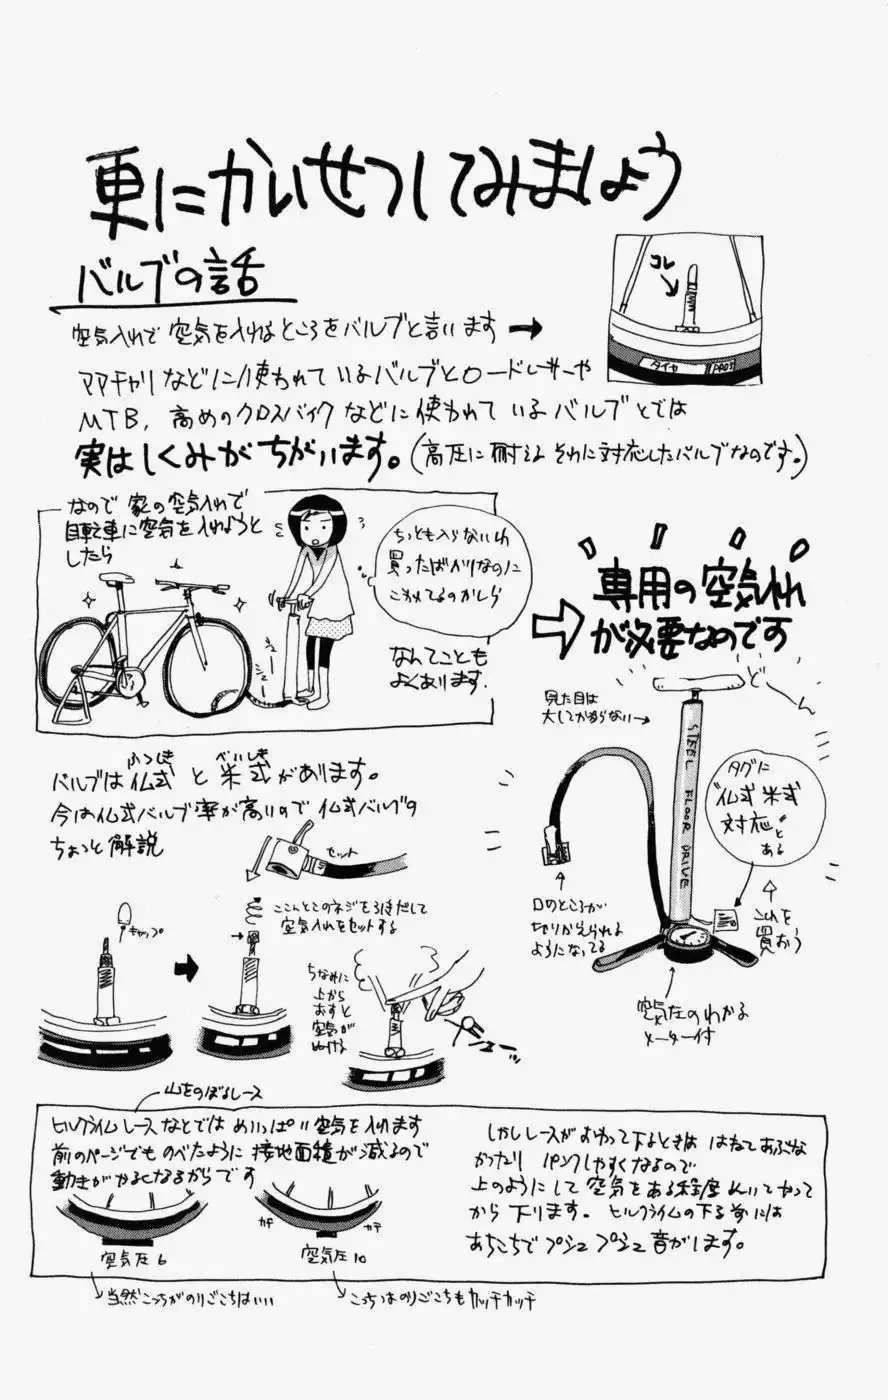 更にかいせつしてみましょう
バルブの話
空気入れで空気を入れるところをバルブと言います
コレ
タイヤ
ママチャリなどに使われているバルブとロードレーサーや
MTB、高めのクロスバイクなどに使われているバルブとでは
実はしくみがちがいます。(高圧に耐えるそれに対応したバルブなのです。)
なので家の空気入れで
自転車に空気を入れようと
したら
ちっとも入らないわ
買ったばかりなのに
こわれてるのかしら
なんてことも
よくあります。
専用の空気入れ
が必要なのです
どーん
見た目は
大してかわらない
STEEL FLOOR DRIVE
タグに
"仏式米式
対応"と
ある
これを
買おう
口のところが
切りかえられる
ようになってる
空気圧のわかる
メーター付
ふつしき
べいしき
バルブは仏式と米式があります。
今は仏式バルブ率が高いので仏式バルブの
ちょっと解説
セット
キャップ
ここんとこのネジをゆるめて
空気入れをセットする
ちなみに
上から
おすと
空気が
ぬける
山をのぼるレース
ヒルクライムレースなどではめいっぱい空気を入れます
前のページでものべたように接地面積が減るので
動きがかるくなるからです
空気圧6
カチ
カチ
空気圧10
当然こっちがのりごこちはいい
こっちはのりごこちもカッチカッチ
しかしレースがおわって下るときははねてあぶな
かったりパンクしやすくなるので
上のようにして空気をある程度ぬいてやって
から下ります。ヒルクライムの下る前には
あちこちでプシュプシュ音がします。